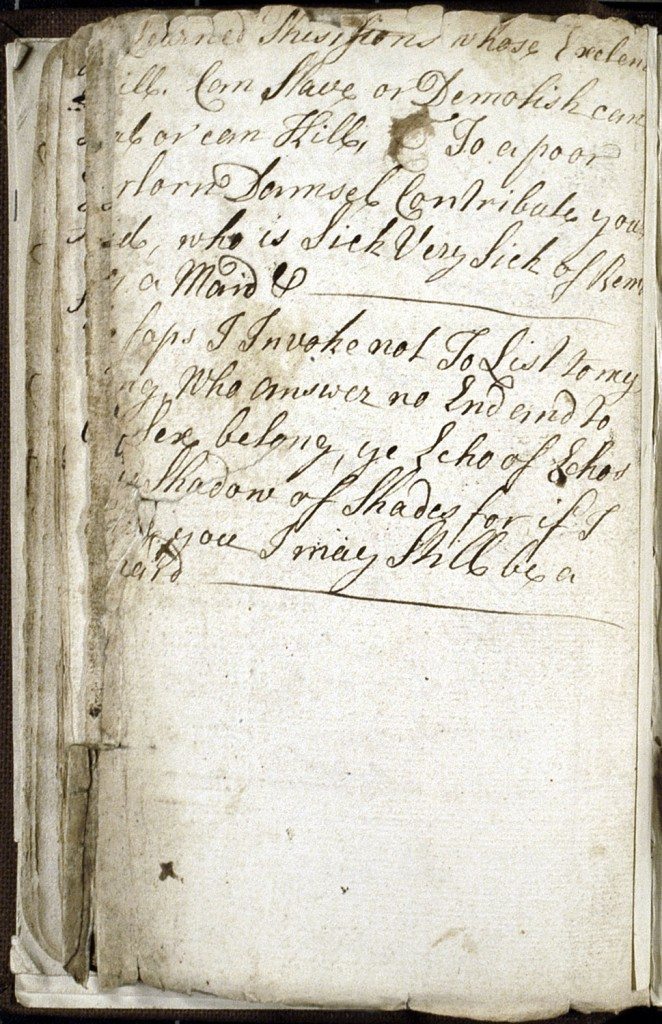 Learned Thisisions whose Exclen
ill. Can Slave or Demolish can
or can Kill, To a poor
rlorn Damsel Contribute you
id, who is Sick Very Sick of Rem
g a Maid &
saps I Invoke not To List to my
ng, Who answer no End and to
Sex belong, ye Echo of Echos
Shadow of Shades for if I
you I may Still be a